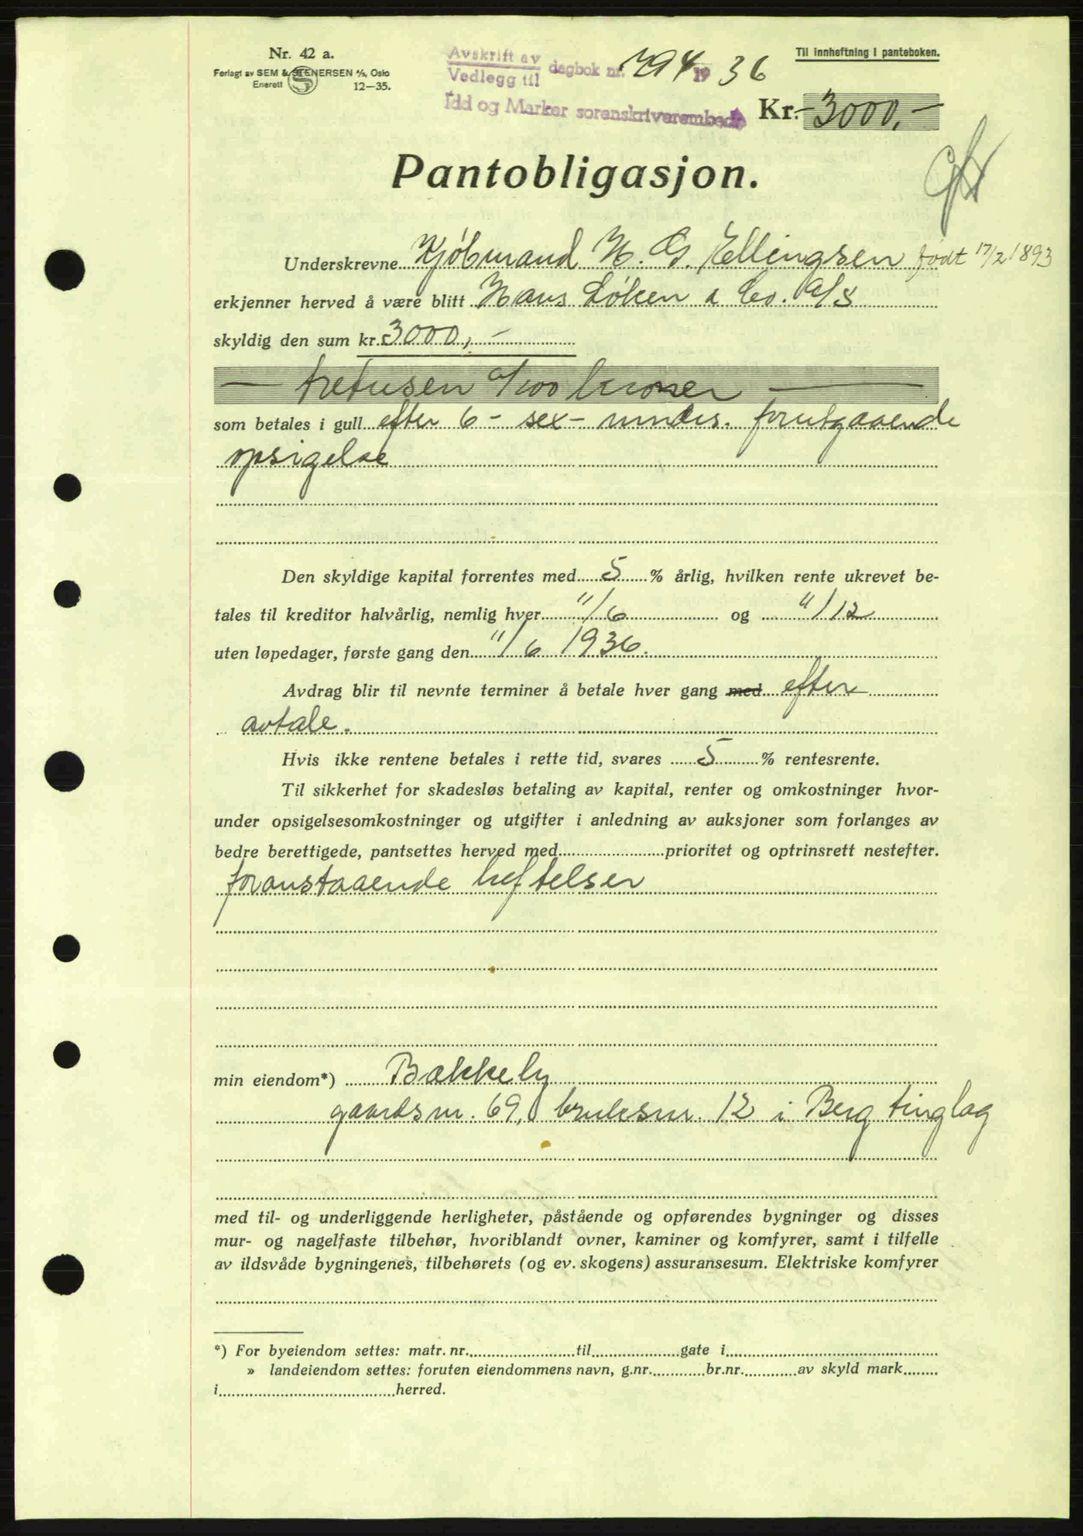 Nr. 42 a.
Forlagt av SEM & STENERSEN A/S, Oslo
Enerett 12—35.
Avskrift av
Vedlegg til dagbok nr. 794 1936
Idd og Marker sorenskriverembede
Til innheftning i panteboken.
Kr. 3000,-
Pantobligasjon.
Underskrevne Kjøbmand H. G. Ellingsen født 17/2 1893
erkjenner herved å være blitt Hans Løken & Co. A/S
skyldig den sum kr. 3000,-
— tretusen 0/100 kroner —
som betales i gull efter 6 - sex - mnders. forutgaaende
opsigelse
Den skyldige kapital forrentes med 5 % årlig, hvilken rente ukrevet be-
tales til kreditor halvårlig, nemlig hver 11/6 og 11/12
uten løpedager, første gang den 11/6 1936.
Avdrag blir til nevnte terminer å betale hver gang med efter
avtale.
Hvis ikke rentene betales i rette tid, svares 5 % rentesrente.
Til sikkerhet for skadesløs betaling av kapital, renter og omkostninger hvor-
under opsigelsesomkostninger og utgifter i anledning av auksjoner som forlanges av
bedre berettigede, pantsettes herved med prioritet og optrinsrett nestefter.
foranstaaende heftelser
min eiendom*) Bakkely
gaardsnr. 69, bruksnr. 12 i Berg tinglag
med til- og underliggende herligheter, påstående og opførendes bygninger og disses
mur- og nagelfaste tilbehør, hvoriblandt ovner, kaminer og komfyrer, samt i tilfelle
av ildsvåde bygningenes, tilbehørets (og ev. skogens) assuransesum. Elektriske komfyrer
*) For byeiendom settes: matr. nr. til gate i
» landeiendom settes: foruten eiendommens navn, g.nr. br.nr. av skyld mark
i herred.